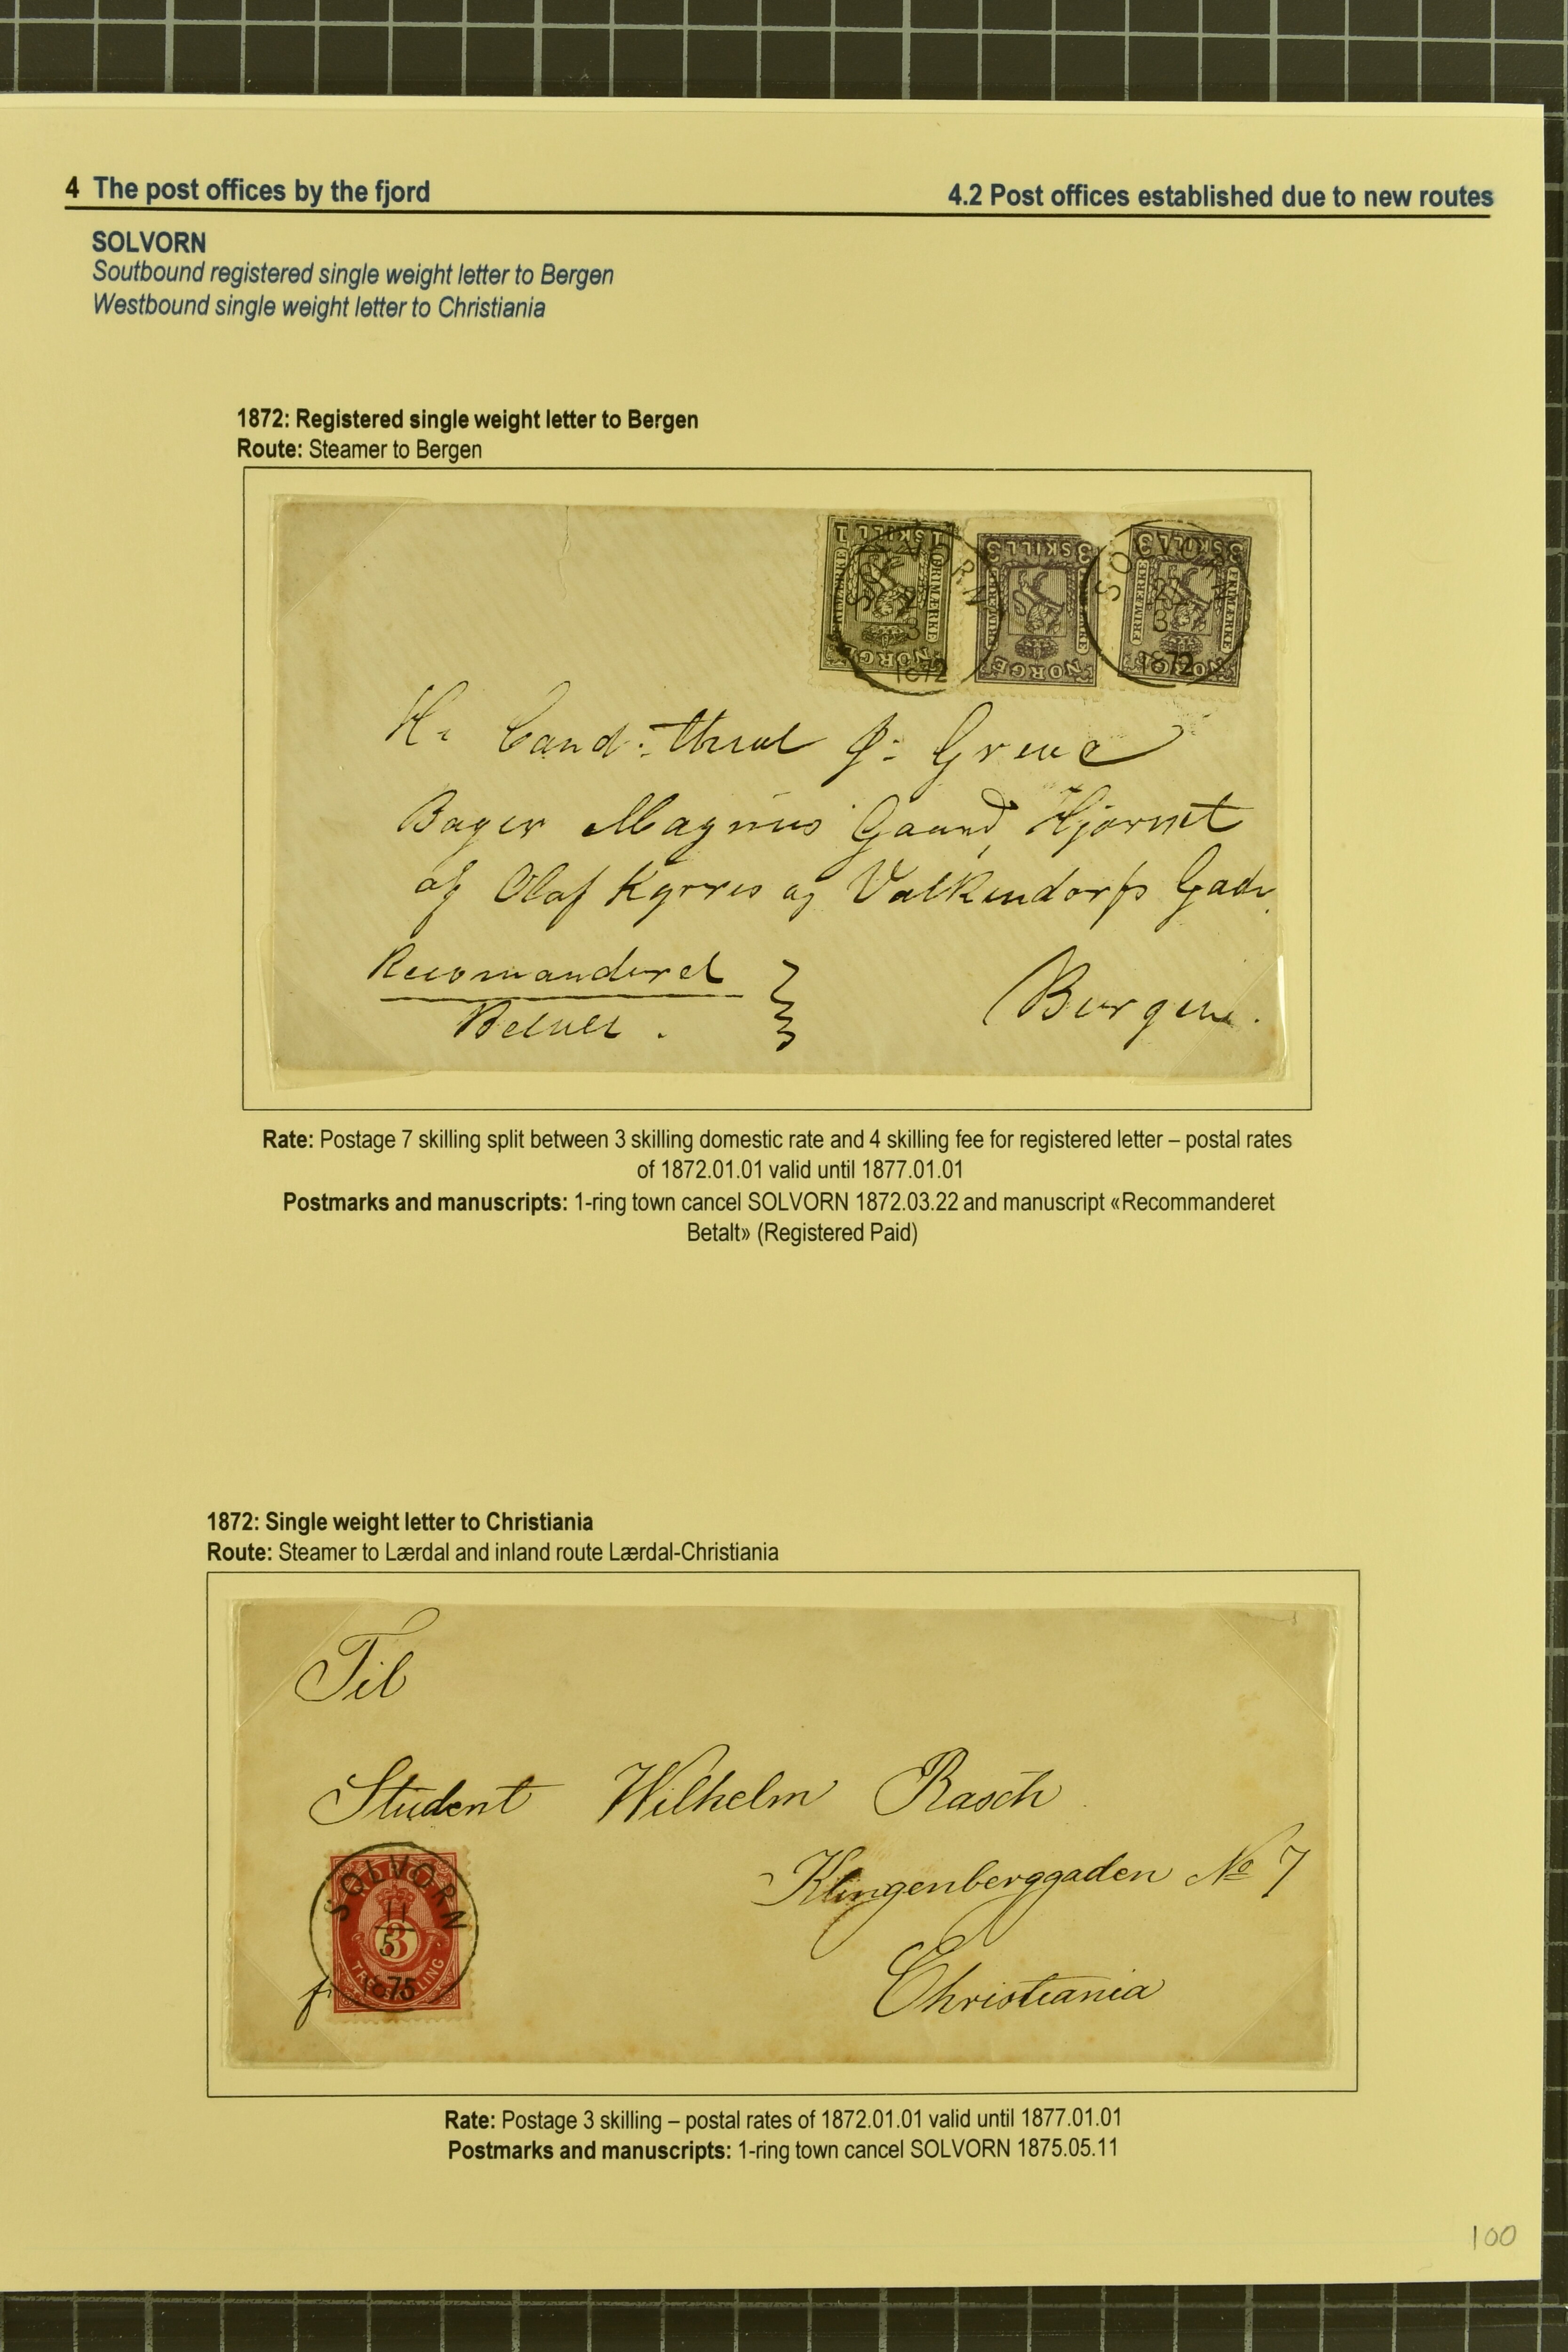 4 The post offices by the fjord
4.2 Post offices established due to new routes
SOLVORN
Soutbound registered single weight letter to Bergen
Westbound single weight letter to Christiania
1872: Registered single weight letter to Bergen
Route: Steamer to Bergen
1 SKILL 1
FRIMÆRKE
NORGE
3 SKILL 3
NORGE
3 SKILL 3
FRIMÆRKE FRIMÆRKE
NORGE
SOLVORN
3
1872
SOLVORN
3
1872
Hr Cand: Greve
Bager Magnus Gaard, Hjørnet
af Olaf Kyrres og Valkendorfs Gade
Recomanderet
Betalt.
Bergen.
Rate: Postage 7 skilling split between 3 skilling domestic rate and 4 skilling fee for registered letter – postal rates
of 1872.01.01 valid until 1877.01.01
Postmarks and manuscripts: 1-ring town cancel SOLVORN 1872.03.22 and manuscript «Recommanderet
Betalt» (Registered Paid)
1872: Single weight letter to Christiania
Route: Steamer to Lærdal and inland route Lærdal-Christiania
Til
Student Wilhelm Rasch
Klingenberggaden No 7
Christiania
SOLVORN
11
5
1875
3
TRE SKILLING
fr
Rate: Postage 3 skilling – postal rates of 1872.01.01 valid until 1877.01.01
Postmarks and manuscripts: 1-ring town cancel SOLVORN 1875.05.11
100